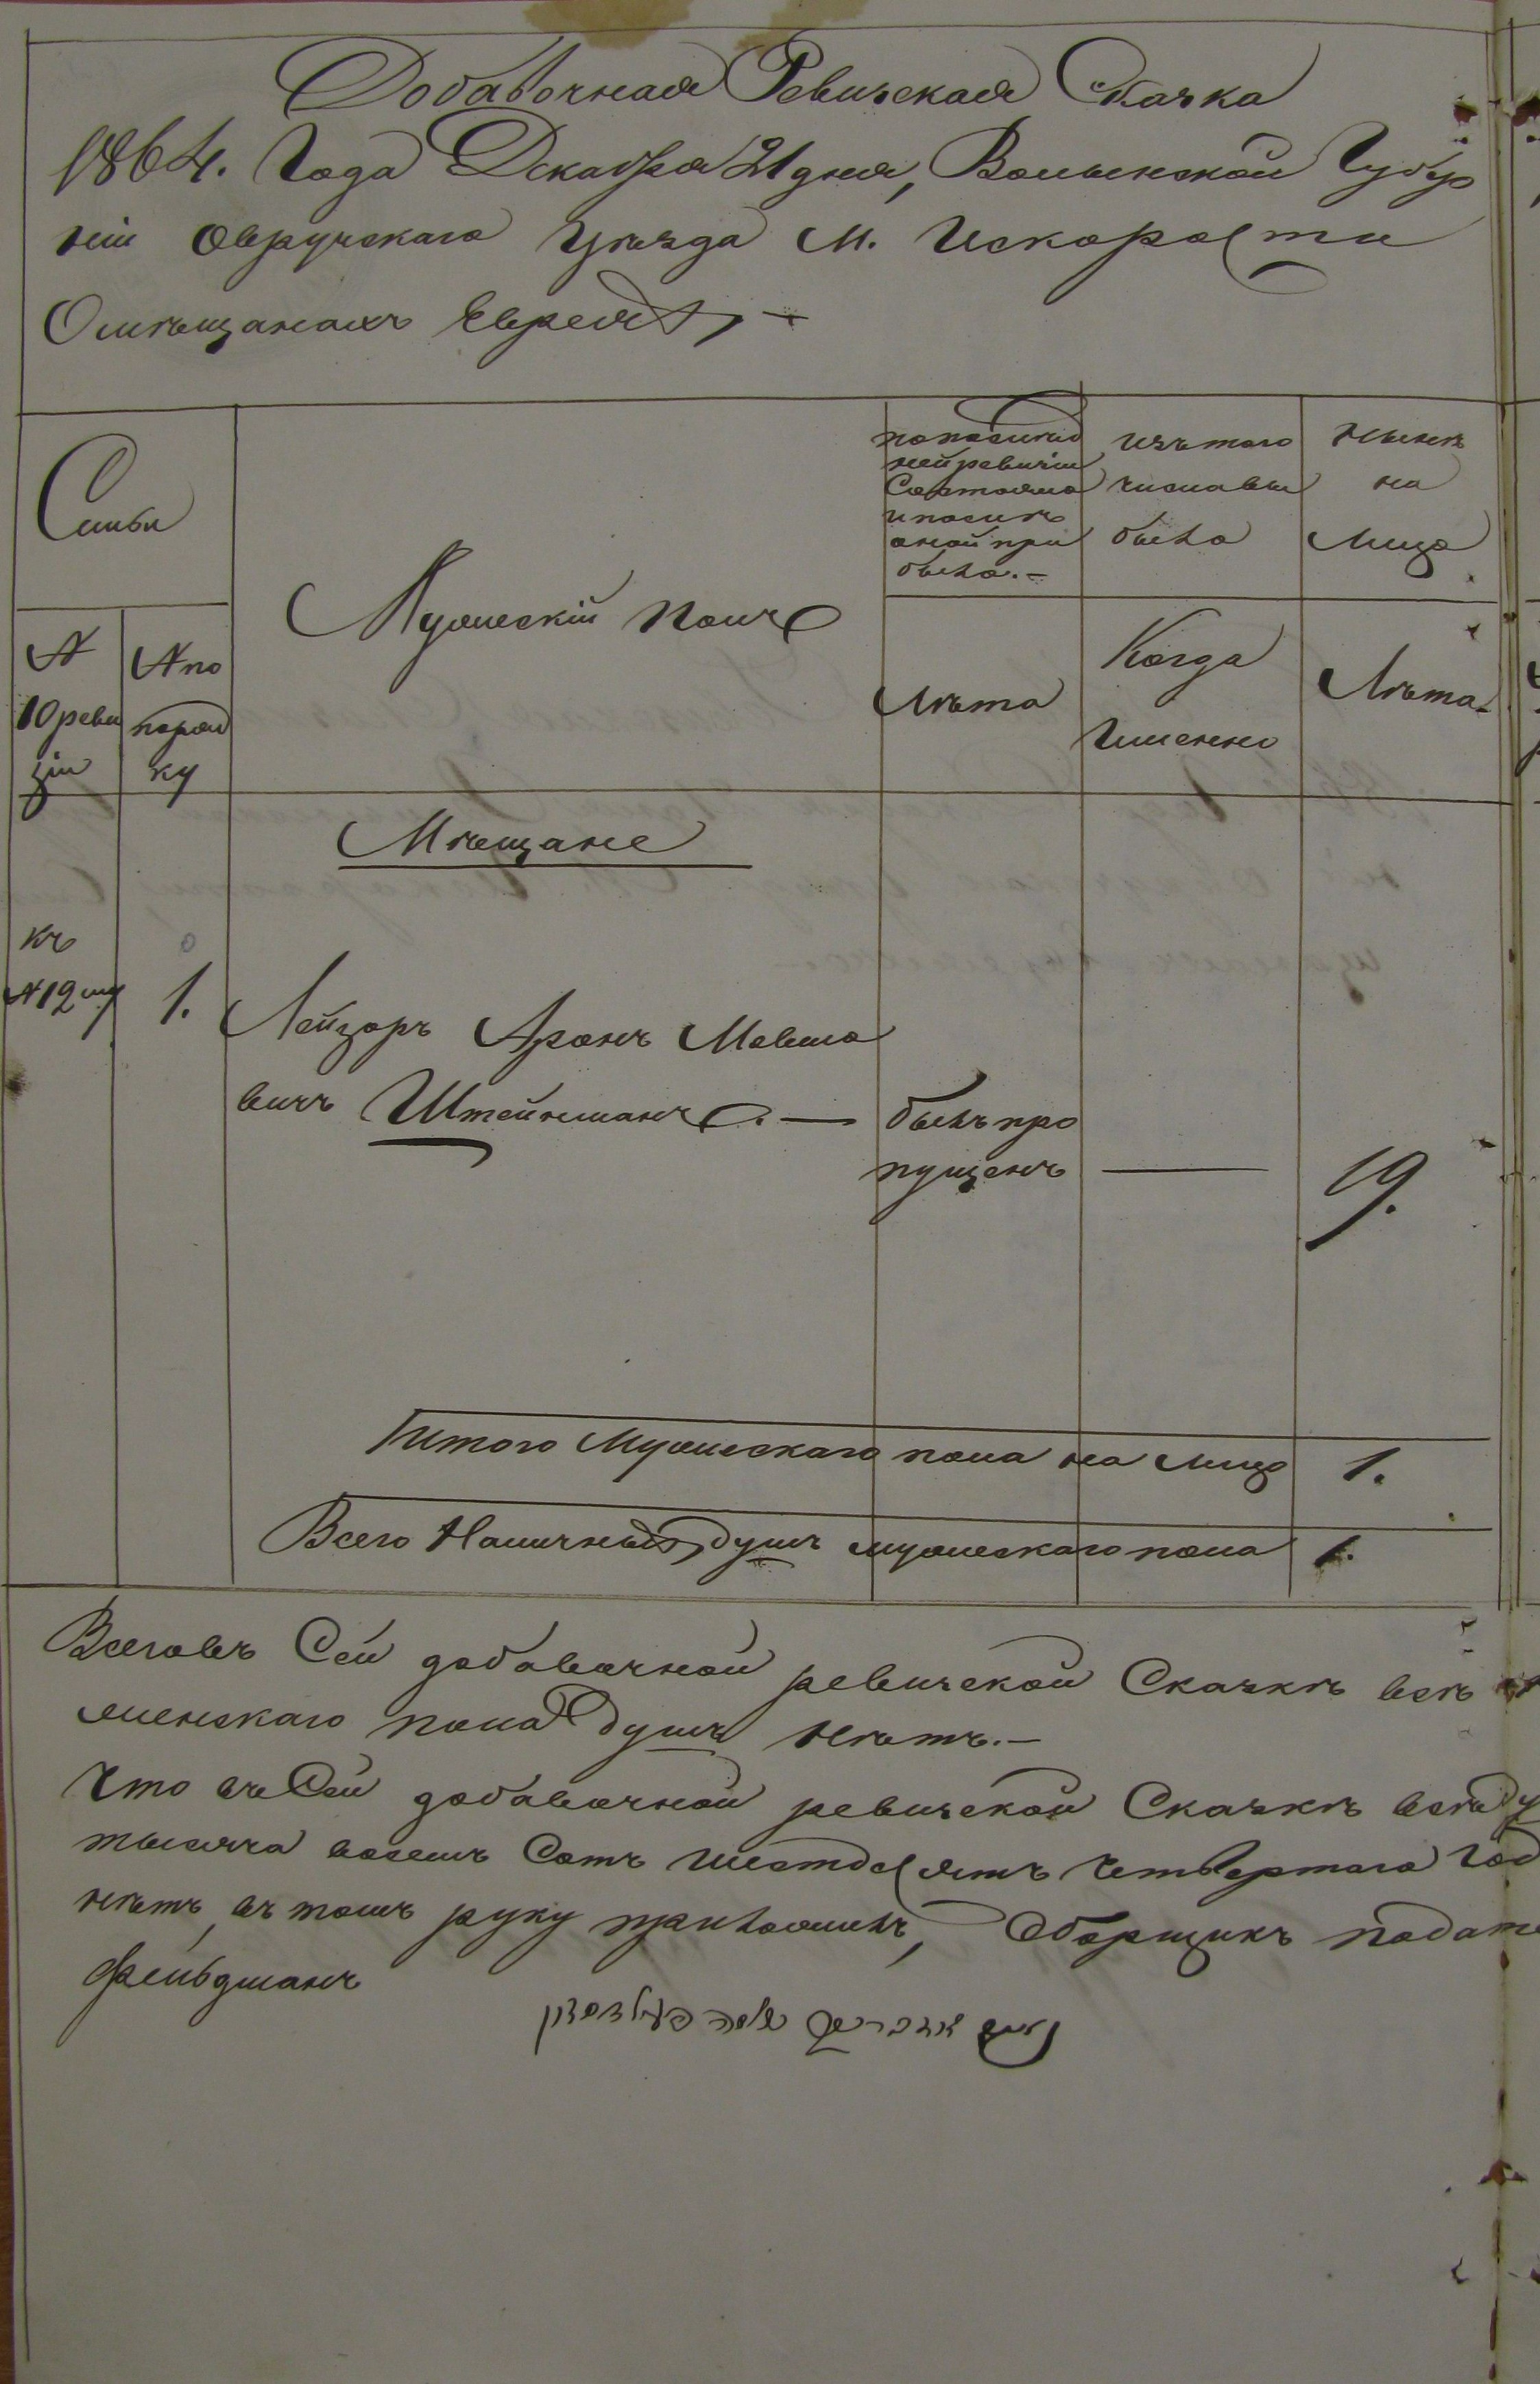 Добавочная Ревизская Сказка
1864. Года Декабря 21 дня, Волынской Губер
ніи Овручскаго Уѣзда М. Искорости
О мѣщанахъ Евреяхъ, —
Семьи
№ 10 реви зіи
№ по поряд ку
Мужескій полъ
по послѣд ней ревизіи Состояло и послѣ оной при было. —
изъ того числа вы было
Нынѣ на лицо
Лѣта
Когда Именно
Лѣта.
Мѣщане
Къ
№ 12 му
1.
Лейзоръ Аронъ Мовшо
вичъ Штейнманъ. —
былъ про
пущенъ
—
19.
Итого Мужескаго пола на лицо 1.
Всего Наличныхъ душъ мужескаго пола 1.
Всего въ Сей добавочной ревизской Сказкѣ всѣ
женскаго пола душъ нѣтъ. —
Что въ Сей добавочной ревизской Сказкѣ всѣ
тысяча восемь Сотъ шестдесятъ четвертаго Год
нѣтъ, въ томъ руку приложилъ, Сборщикъ подате
Фельдманъ
פעלדמאן